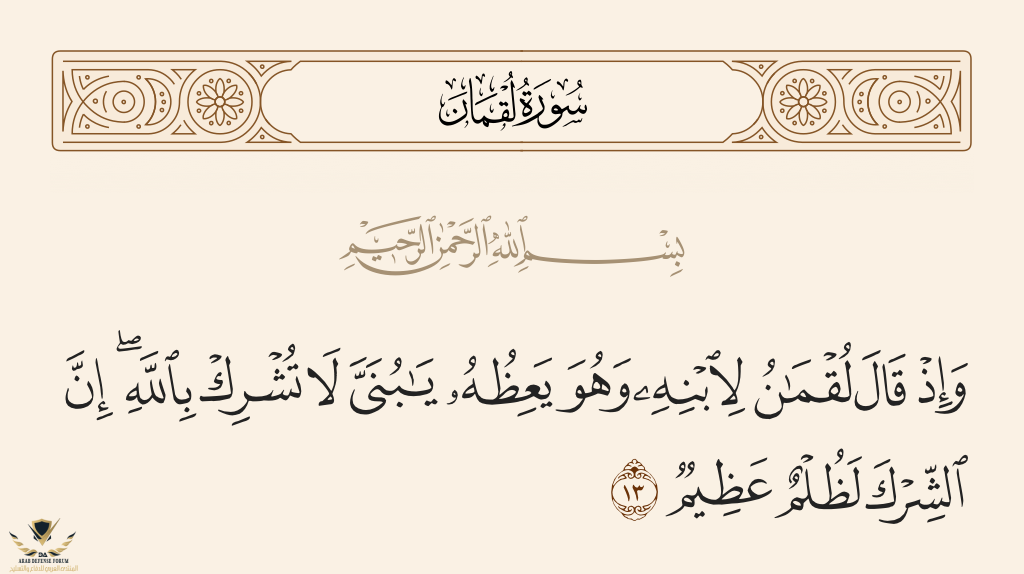 سُورَةُ لُقْمَانَ
بِسْمِ ٱللَّهِ ٱلرَّحْمَٰنِ ٱلرَّحِيمِ
وَإِذْ قَالَ لُقْمَٰنُ لِٱبْنِهِۦ وَهُوَ يَعِظُهُۥ يَٰبُنَىَّ لَا تُشْرِكْ بِٱللَّهِ ۖ إِنَّ
ٱلشِّرْكَ لَظُلْمٌ عَظِيمٌ ١٣
DA
ARAB DEFENSE FORUM
المنتدى العربي للدفاع والتسليح